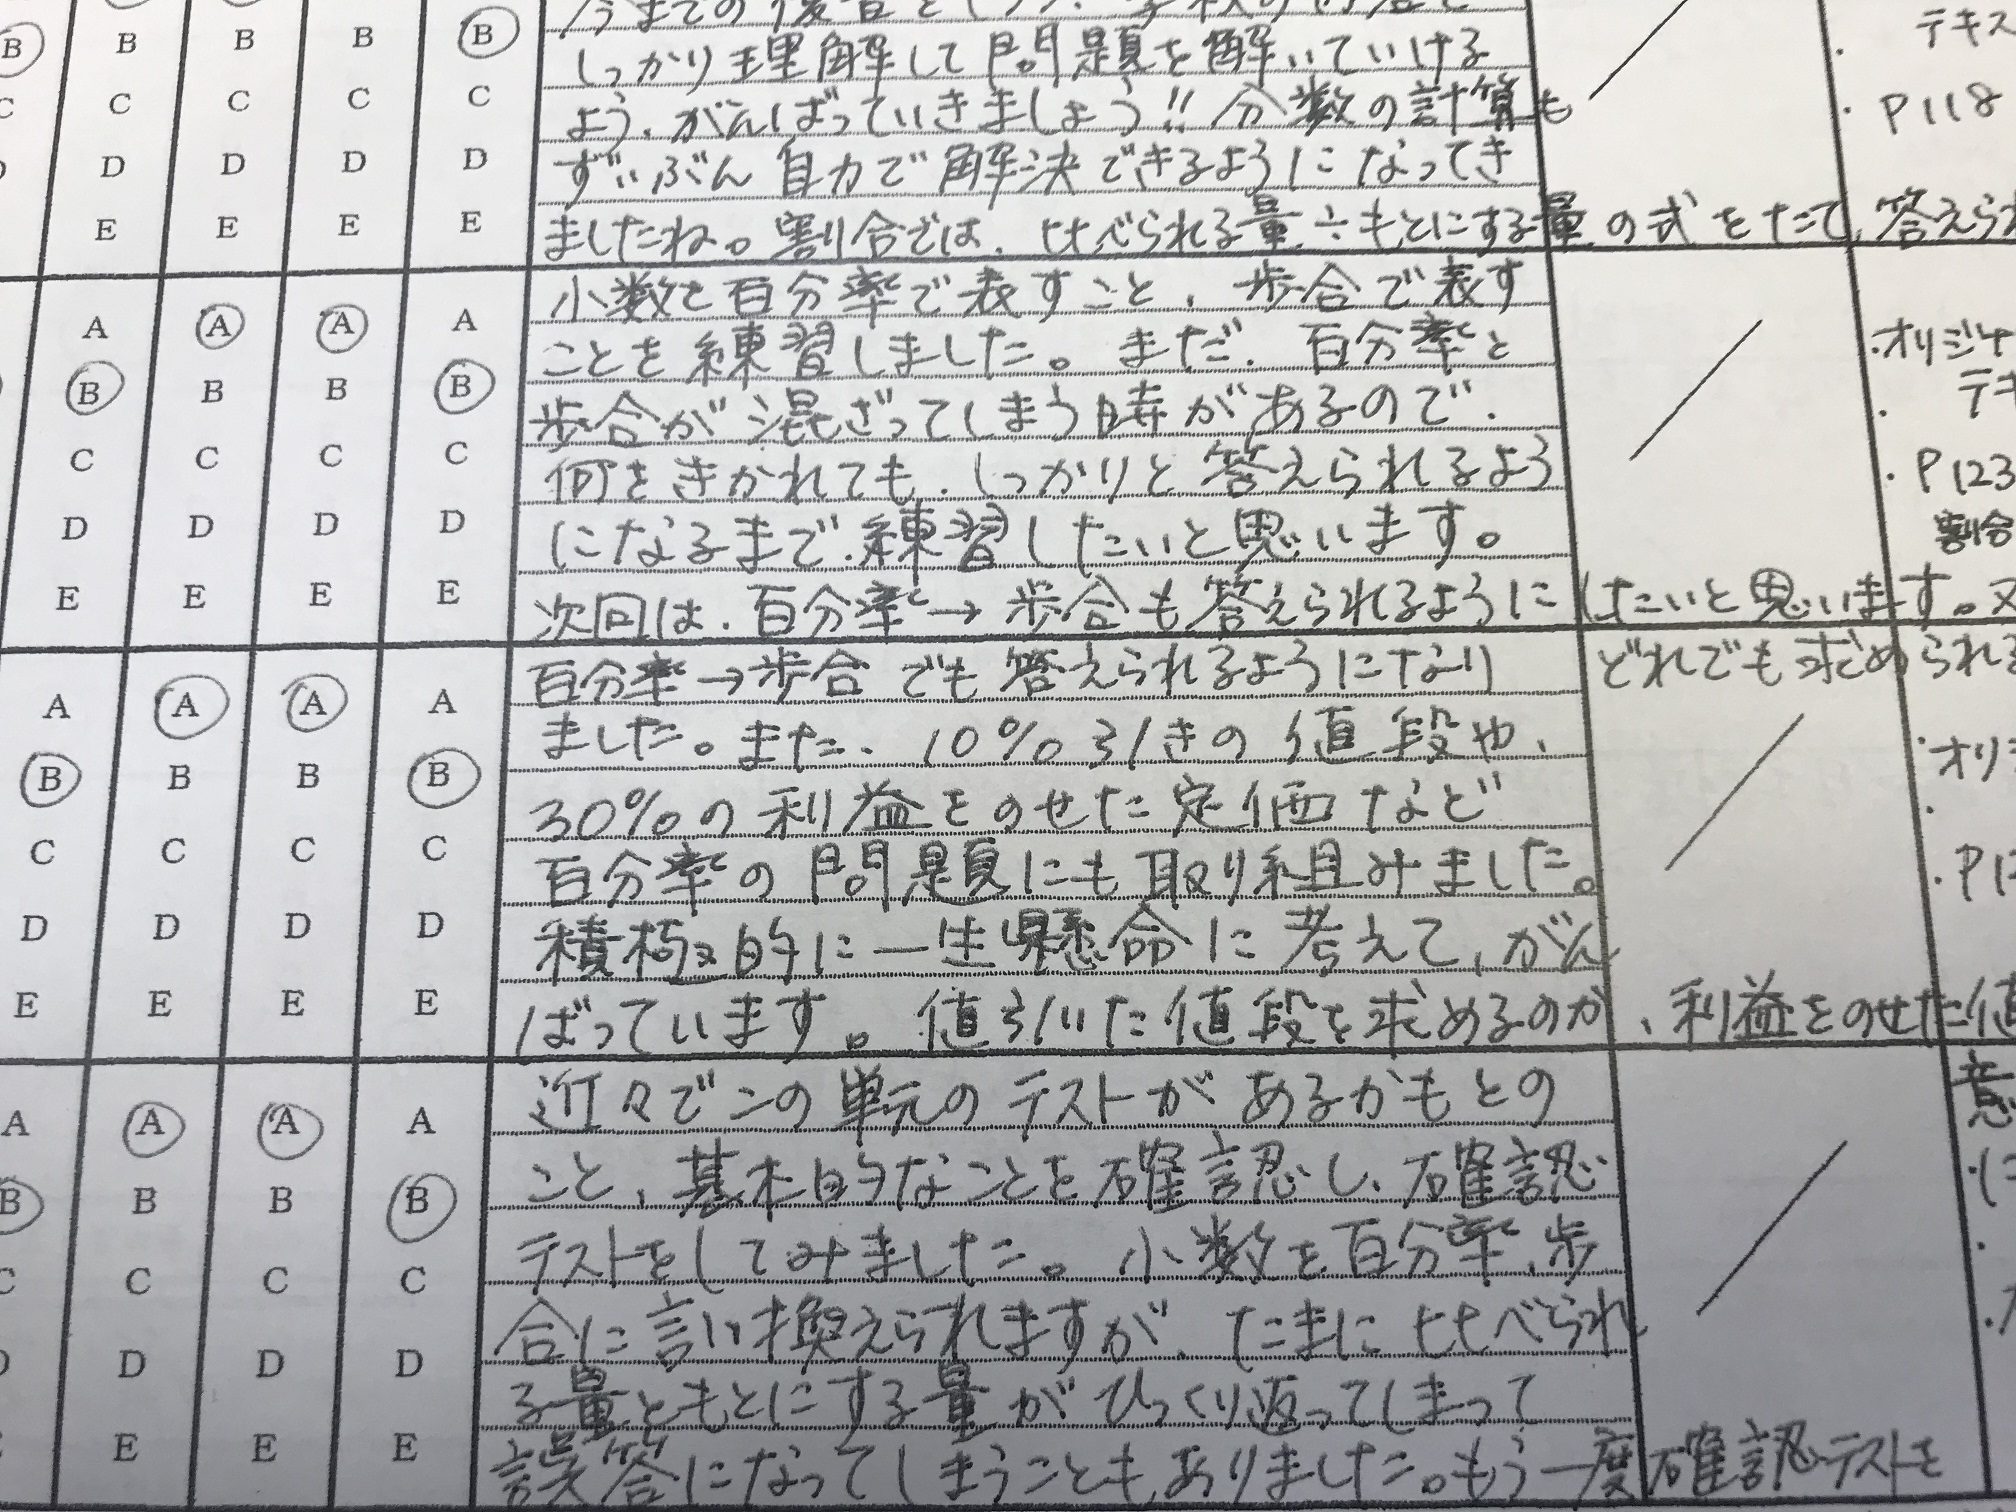 今までの復習をしつつ、学校の内容を
しっかり理解して問題を解いていける
よう、がんばっていきましょう!!分数の計算も
ずいぶん自力で解決できるようになってき
ましたね。割合では、比べられる量÷もとにする量の式をたて、答えられ
テキス
・P118
B B B B B
C C C C C
D D D D D
E E E E
小数を百分率で表すこと、歩合で表す
ことを練習しました。まだ、百分率と
歩合が混ざってしまう時があるので、
何をきかれても、しっかりと答えられるよう
になるまで、練習したいと思います。
次回は、百分率→歩合も答えられるようにしたいと思います。又
・オリジナ
テキ
・P123
割合
A A A A
B B B B
C C C C
D D D D
E E E E
百分率→歩合でも答えられるようになり
どれでも求められる
ました。また、10%引きの値段や、
30%の利益をのせた定価など
百分率の問題にも取り組みました。
積極的に一生懸命に考えて、がん
ばっています。値引いた値段を求めるのか、利益をのせた値
・オリ
・P12
A A A A
B B B B
C C C C
D D D D
E E E E
近々でこの単元のテストがあるかもとの
こと、基本的なことを確認し、確認
テストをしてみました。小数を百分率、歩
合に言い換えられますが、たまに比べられ
る量ともとにする量がひっくり返ってしまって
誤答になってしまうこともありました。もう一度確認テストを
意
A A A A
B B B B
C C C C
D D D D
E E E